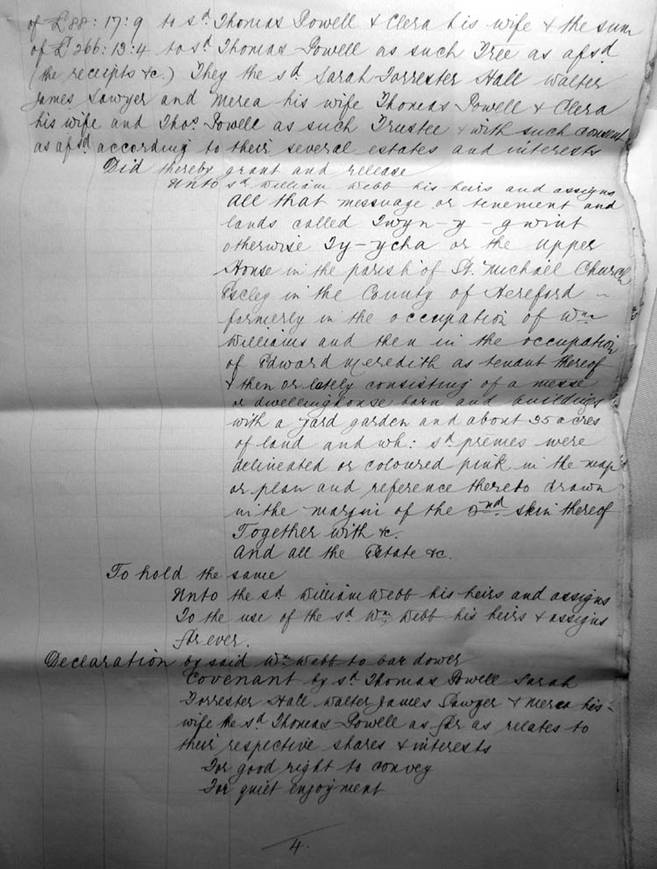 of £88:17:9 to sd. Thomas Powell & Clera his wife & the sum
of £266:13:4 to sd. Thomas Powell as such Tree as afsd
(the receipts &c.) They the sd. Sarah Forrester Hall Walter
James Sawyer and Merea his wife Thomas Powell & Clera
his wife and Thos Powell as such Trustee & with such consent
as afsd according to their several estates and interests
Did thereby grant and release
Unto sd William Webb his heirs and assigns
All that messuage or tenement and
lands called Twyn-y-gwint
otherwise Ty-ycha or the Upper
House in the parish of St. Michael Church
Escleg in the County of Hereford –
formerly in the occupation of Wm
Williams and then in the occupation
of Edward Meredith as tenant thereof
& then or lately consisting of a messe
or dwellinghouse barn and buildings
with a yard garden and about 35 acres
of land and wh: sd premes were
delineated or coloured pink in the map
or plan and reference thereto drawn
in the margin of the 2nd skin thereof
Together with &c.
And all the Estate &c.
To hold the same
Unto the sd William Webb his heirs and assigns
To the use of the sd Wm. Webb his heirs & assigns
for ever.
Declaration by said Wm. Webb to bar dower
Covenant by sd. Thomas Powell Sarah
Forrester Hall Walter James Sawyer & Merea his
wife the sd. Thomas Powell as far as relates to
their respective shares & interests
For good right to convey
For quiet enjoyment
4.